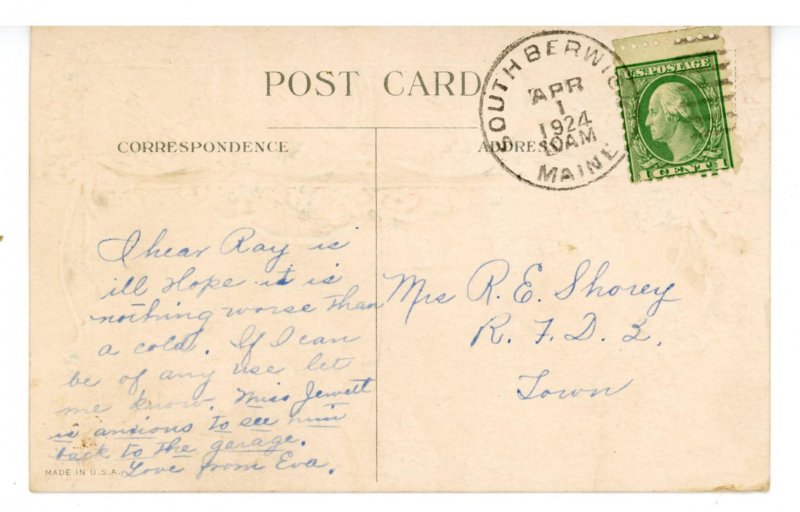 POST CARD
SOUTH BERWI
APR
1
1924
10AM
MAINE
U.S. POSTAGE
1 CENT 1
CORRESPONDENCE
ADDRESS
I hear Ray is
ill Hope it is
nothing worse than
a cold. If I can
be of any use let
me know. Miss Jewett
is anxious to see him
back to the garage.
Love from Eva.
Mrs R. E. Shorey
R. F. D. 2.
Town
MADE IN U.S.A.